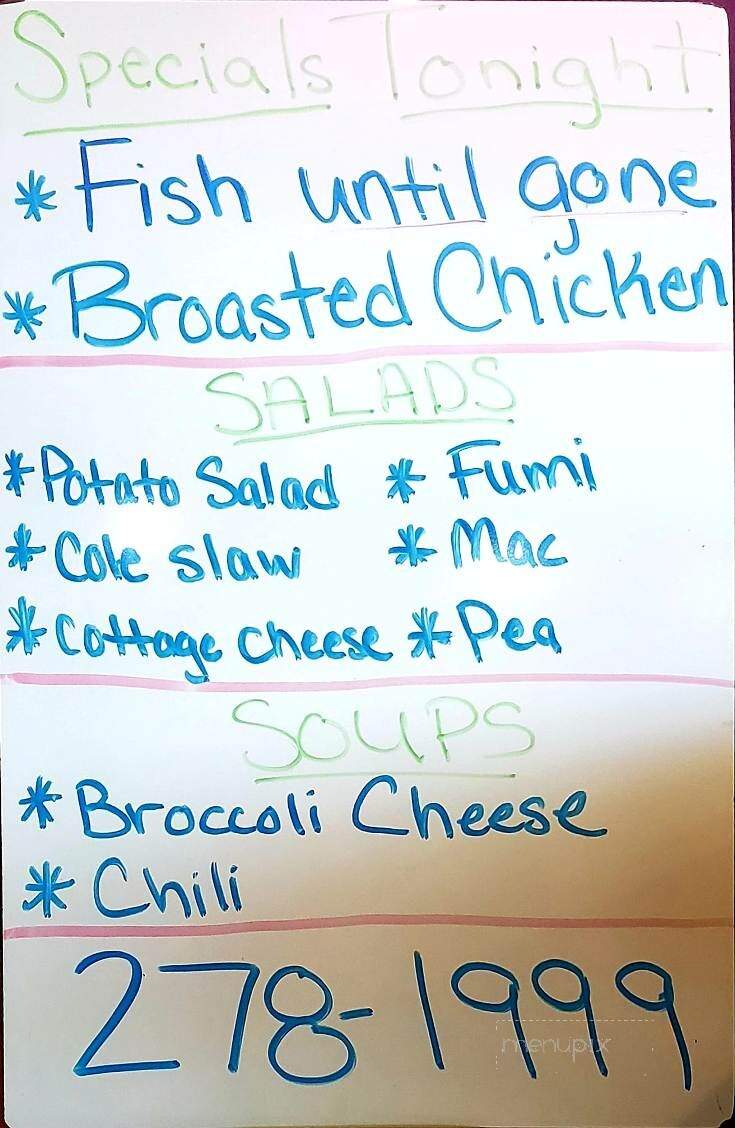 Specials Tonight
* Fish until gone
* Broasted Chicken
SALADS
* Potato Salad * Fumi
* Cole slaw * Mac
* Cottage cheese * Pea
SOUPS
* Broccoli Cheese
* Chili
278-1999
menupix